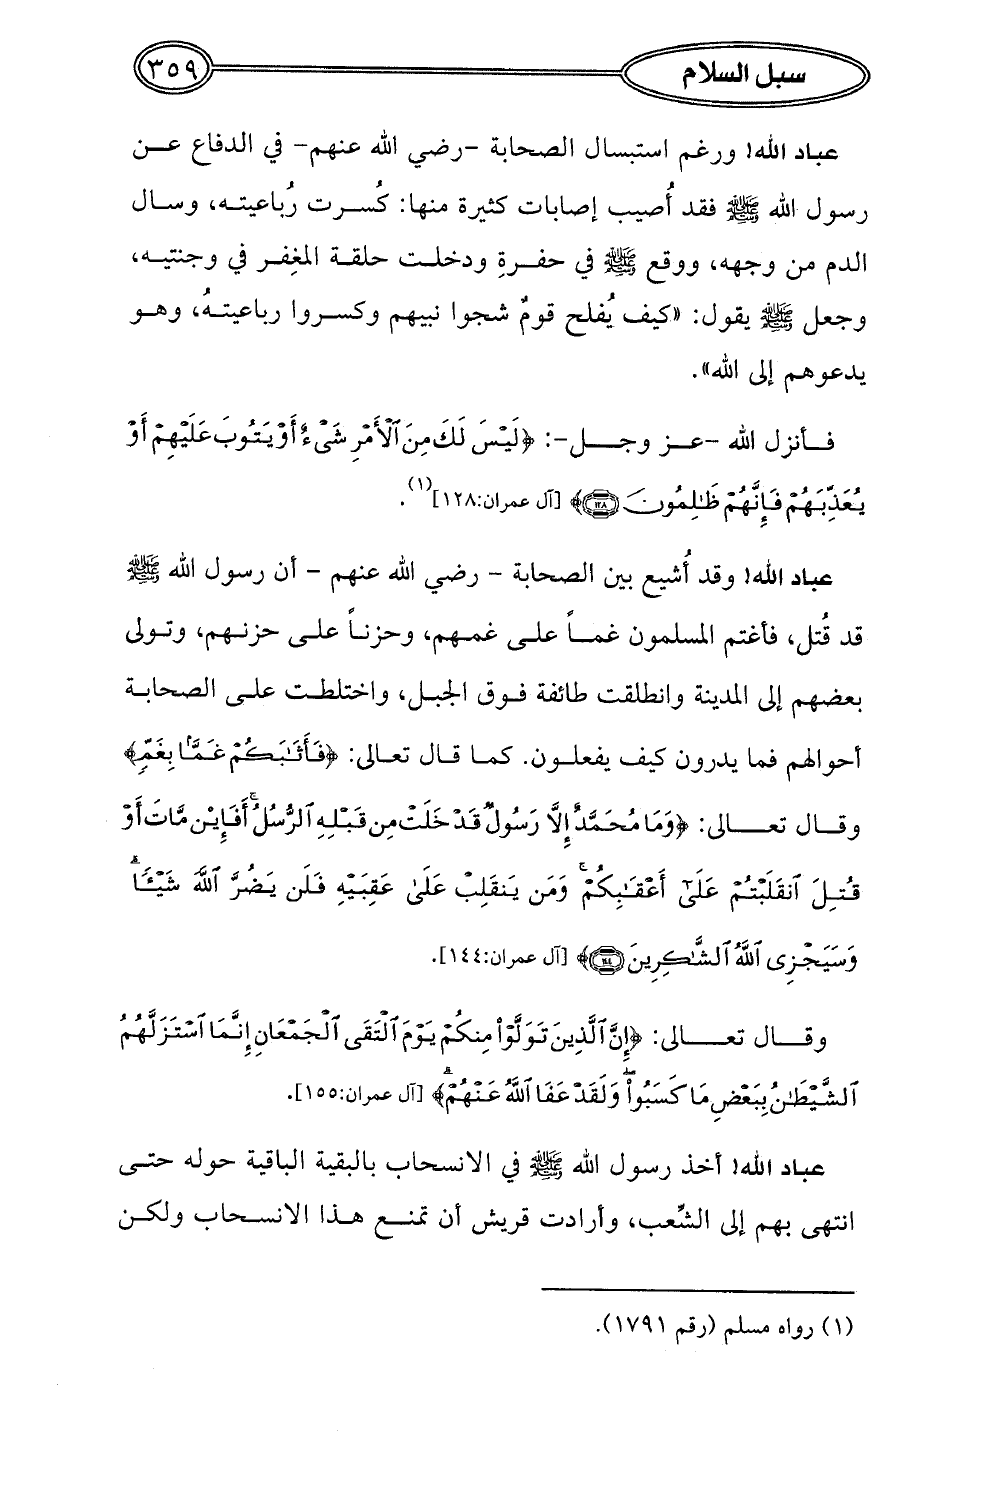 سبل السلام ٣٥٩
عباد الله! ورغم استبسال الصحابة -رضي الله عنهم- في الدفاع عن
رسول الله ﷺ فقد أُصيب إصابات كثيرة منها: كُسرت رُباعيته، وسال
الدم من وجهه، ووقع ﷺ في حفرةِ ودخلت حلقة المِغفر في وجنتيه،
وجعل ﷺ يقول: «كيف يُفلح قومٌ شجوا نبيهم وكسروا رباعيتهُ، وهو
يدعوهم إلى الله».
فأنزل الله -عز وجل-: ﴿لَيْسَ لَكَ مِنَ ٱلْأَمْرِ شَىْءٌ أَوْ يَتُوبَ عَلَيْهِمْ أَوْ
يُعَذِّبَهُمْ فَإِنَّهُمْ ظَٰلِمُونَ ١٢٨﴾ [آل عمران:١٢٨](١).
عباد الله! وقد أُشيع بين الصحابة - رضي الله عنهم - أن رسول الله ﷺ
قد قُتل، فأغتم المسلمون غماً على غمهم، وحزناً على حزنهم، وتولى
بعضهم إلى المدينة وانطلقت طائفة فوق الجبل، واختلطت على الصحابة
أحوالهم فما يدرون كيف يفعلون. كما قال تعالى: ﴿فَأَثَٰبَكُمْ غَمًّۢا بِغَمٍّ﴾
وقال تعالى: ﴿وَمَا مُحَمَّدٌ إِلَّا رَسُولٌ قَدْ خَلَتْ مِن قَبْلِهِ ٱلرُّسُلُ ۚ أَفَإِي۟ن مَّاتَ أَوْ
قُتِلَ ٱنقَلَبْتُمْ عَلَىٰٓ أَعْقَٰبِكُمْ ۚ وَمَن يَنقَلِبْ عَلَىٰ عَقِبَيْهِ فَلَن يَضُرَّ ٱللَّهَ شَيْـًٔا ۗ
وَسَيَجْزِى ٱللَّهُ ٱلشَّٰكِرِينَ ١٤٤﴾ [آل عمران:١٤٤].
وقال تعالى: ﴿إِنَّ ٱلَّذِينَ تَوَلَّوْا۟ مِنكُمْ يَوْمَ ٱلْتَقَى ٱلْجَمْعَانِ إِنَّمَا ٱسْتَزَلَّهُمُ
ٱلشَّيْطَٰنُ بِبَعْضِ مَا كَسَبُوا۟ ۖ وَلَقَدْ عَفَا ٱللَّهُ عَنْهُمْ ۗ﴾ [آل عمران:١٥٥].
عباد الله! أخذ رسول الله ﷺ في الانسحاب بالبقية الباقية حوله حتى
انتهى بهم إلى الشِّعب، وأرادت قريش أن تمنع هذا الانسحاب ولكن
(١) رواه مسلم (رقم ١٧٩١).